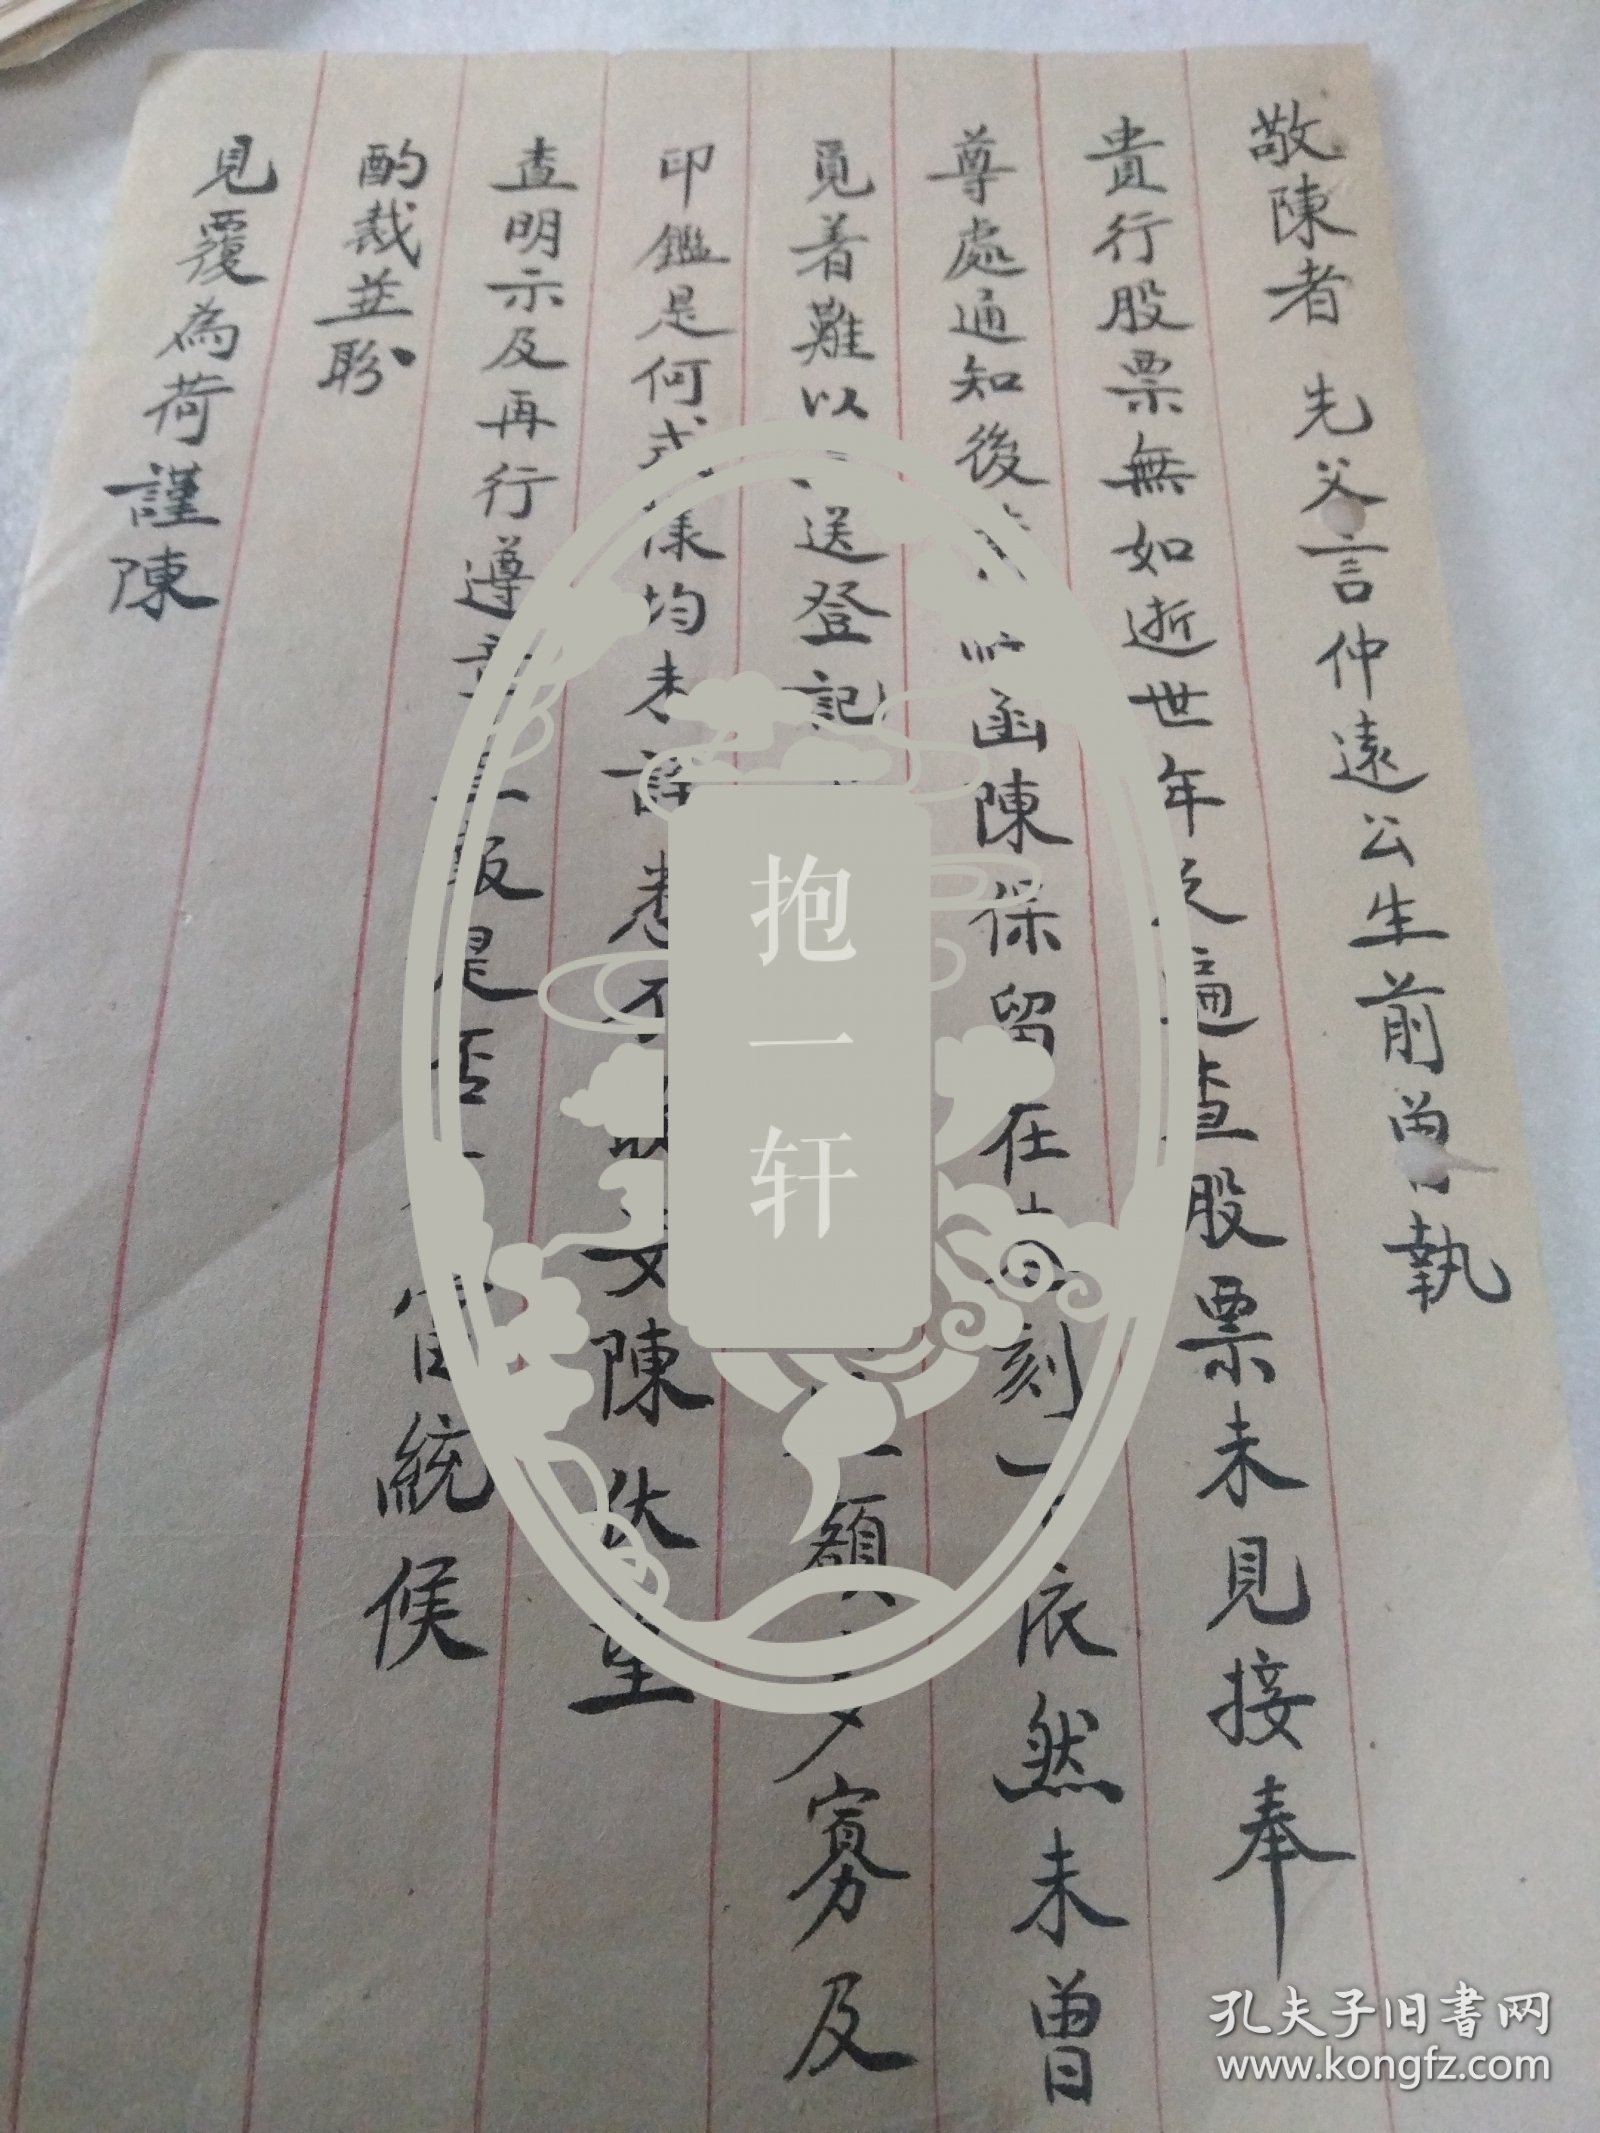 敬陳者 先父言仲遠公生前曾執
貴行股票無如逝世年久遍查股票未見接奉
尊處通知後函陳保留在刻下依然未曾
覓着難以送登記額多寡及
印鑑是何式樣均未詳悉不敢妄陳伏望
查明示及再行遵報是否當統候
酌裁並盼
見覆為荷謹陳
抱一轩
孔夫子旧書网
www.kongfz.com